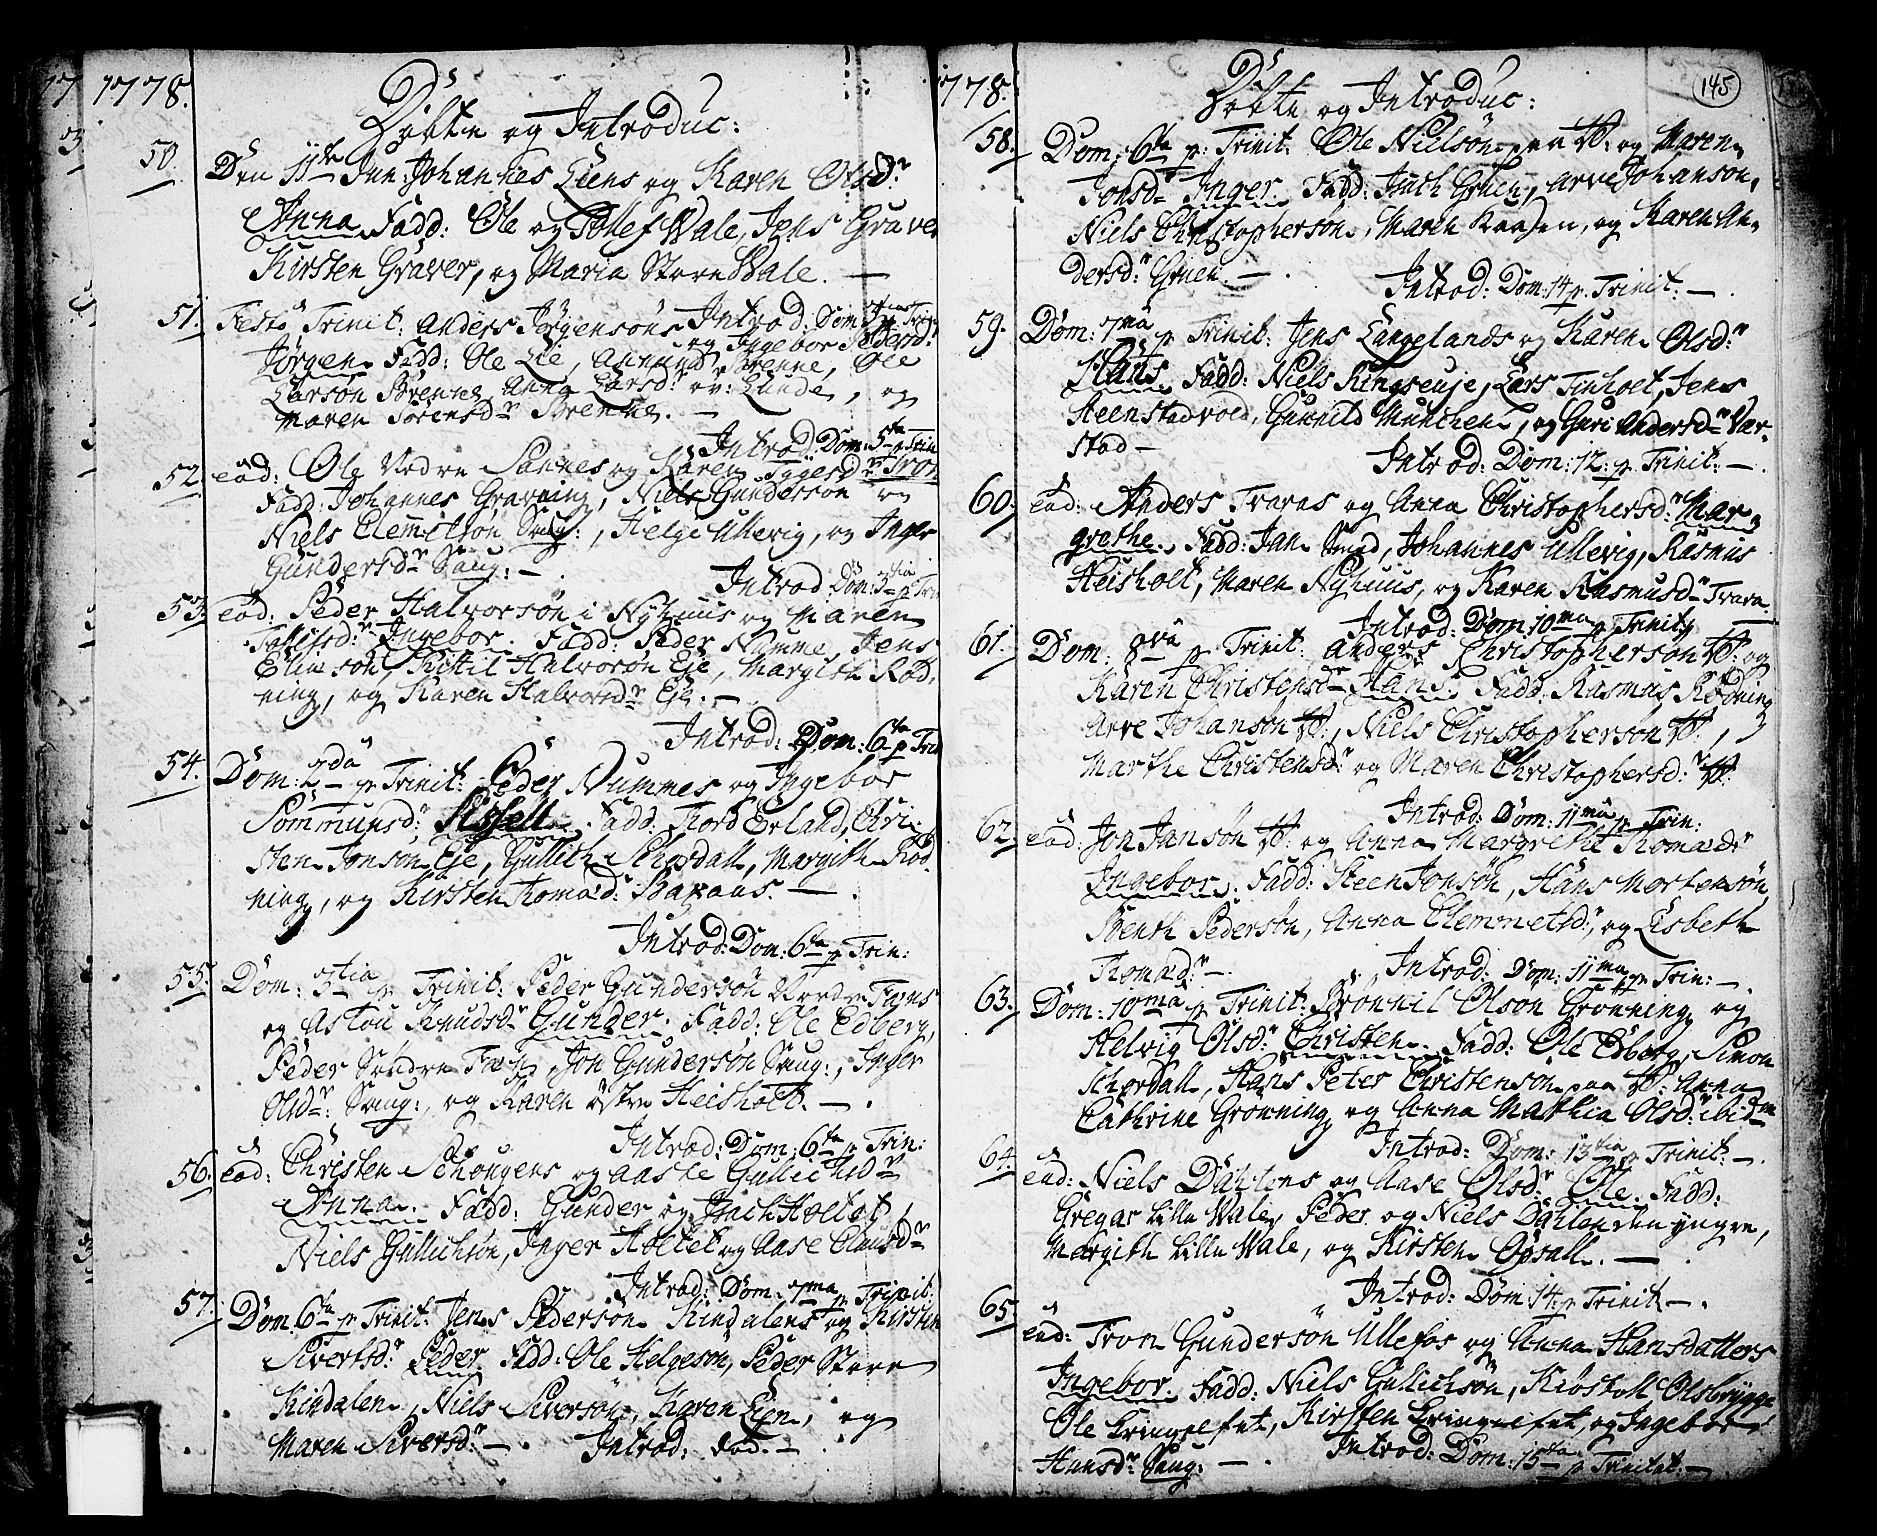 1778.
Döbte og Introduc:
50. Den 11te Jun: Johannes Liens og Karen Olsdr
Anna Fadd: Ole og Tollef Wale, Jens Graver
Kirsten Graver, og Maria Store Wale. —
Introd: Dom: p Trin
51. Festo Trinit: Anders Jörgensöns og Ingebor Pedersdr
Jörgen. Fadd: Ole Lie, Amund Brenne, Ole
Larsön Brenne, Anna Larsd: Lunde, og
Maren Sörensdr Brenne. —
Introd: Dom: 5ta p Trin
52. eod: Ole Nedre Sannes og Karen Tygesdr Tron.
Fadd: Johannes Gravning, Niels Gundersön og
Niels Clemetsön Saug:, Helge Ullevig, og Inger
Gundersdr Saug: —
Introd Dom: 3tia p Trin
53. eod: Peder Halvorsön i Nyhuus og Maren
Tollefsdr Ingebor. Fadd: Peder Namme, Jens
Eliesön, Kittil Halvorsön Eje, Margith Rød,,
ning, og Karen Halvorsdr Eje. —
Introd: Dom: 6ta p Trin
54. Dom: 2da p Trinit: Peder Nummes og Ingebor
Sommunsd: Sissell. Fadd: Tord Erland, Chri,,
sten Jonson Eje, Gullich Schordall, Margith Rød
ning, og Kirsten Tomæd: Baxaas. —
Introd: Dom: 6ta p Trin:
55. Dom: 3tia p Trinit: Peder Gundersön Nordre Fæns
og Astou Knudsdr Gunder. Fadd: Ole Edberg,
Peder Söndre Fæn, Jon Gundersön Saug:, Inger
Olsdr: Saug:, og Karen östre Heisholt. —
Introd: Dom: 6ta p Trin:
56. eod: Christen Schougens og Aaste Gullichsdr
Anna. Fadd: Gunder og Isach Holtet,
Niels Gullichsön, Inger Holtet og Aase Clausdr
Introd: Dom: 7ma p Trinit:
57. Dom 6ta p Trinit: Jens Pedersön Kindalens og Kirsten
Sivertsd: Peder. Fadd: Ole Helgesön, Peder Store
Kindalen, Niels Siversön, Karen Lien, og
Maren Siversdr —. Introd: död. —
1778.
145
Döbte og Introduc:
58. Dom: 6ta p: Trinit: Ole Nielsön paa W: og Maren
Jonsdr Inger. Fadd: Isach Gruen, Arve Johanson,
Niels Christopherson, Maren Kaasen, og Karen An,,
dersdr Gruen. —
Introd: Dom: 14 p Trinit: —.
59. Dom: 7ma p Trinit: Jens Langelands og Karen Olsdr
Hans Fadd: Niels Ringseuje, Lars Tinholt, Jens
Steenstadvold, Gunnild Munchen, og Guri Andersdr Vær-
stad —
Introd: Dom: 12: p Trinit: —.
60. eod: Anders Traraas og Anna Christophersd: Mar,,
grethe. Fadd: Jan Smed, Johannes Ullevig, Rasmus
Heisholt, Maren Nyhuus, og Karen Rasmusdr Trara.
Introd: Dom: 10ma p Trinit: —
61. Dom: 8va p Trinit: Anders Christopherson W: og
Karen Christensdr Hans. Fadd: Rasmus Rödning
Arve Johanson W:, Niels Christopherson W:,
Marthe Christensdr og Maren Christophersd: W:
Introd: Dom: 11ma p Trin:
62. eod: Jon Jansön W: og Anna Margrethe Thomædr
Ingebor. Fadd: Steen Jonsön, Hans Mortensön
Benth Pedersön, Anna Clemmetsdr, og Lisbeth
Thomædr —.
Introd: Dom: 11ma p Trin: —.
63. Dom: 10ma p Trinit: Brönnil Olson Gronning og
Helvig Olsd: Christen. Fadd: Ole Edberg, Simon
Schordall, Hans Peter Christenson paa W: Anna
Cathrine Gronning og Anna Mathia Olsd: ibidm
Introd: Dom: 13tia p Trinit: —.
64. eod: Niels Dahlens og Aase Olsdr Ole. Fadd:
Gregar Lille Wale, Peder og Niels Dahlen den yngre,
Margith Lille Wale, og Kirsten Opsall. —
Introd: Dom 14 p Trinit: —.
65. eod: Tron Gundersön Ullefos og Anna Hansdatters
Ingebor. Fadd: Niels Gullichsön, Kiöstoll Olsbrygge
Ole Kringlefet, Kirsten Kringlefet, og Ingebor
Hansdr Saug: —
Introd: Dom: 15ta p Trinitat: —